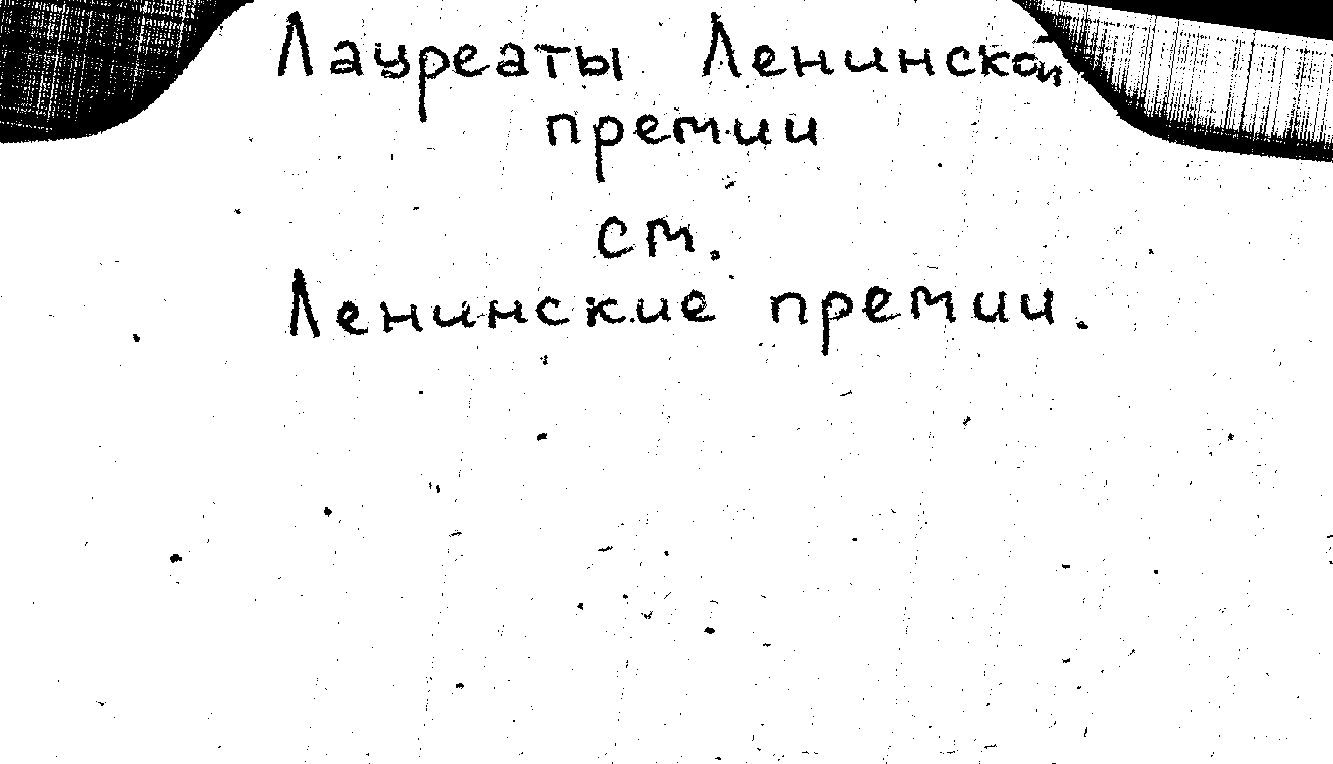 Лауреаты Ленинской
премии
см.
Ленинские премии.